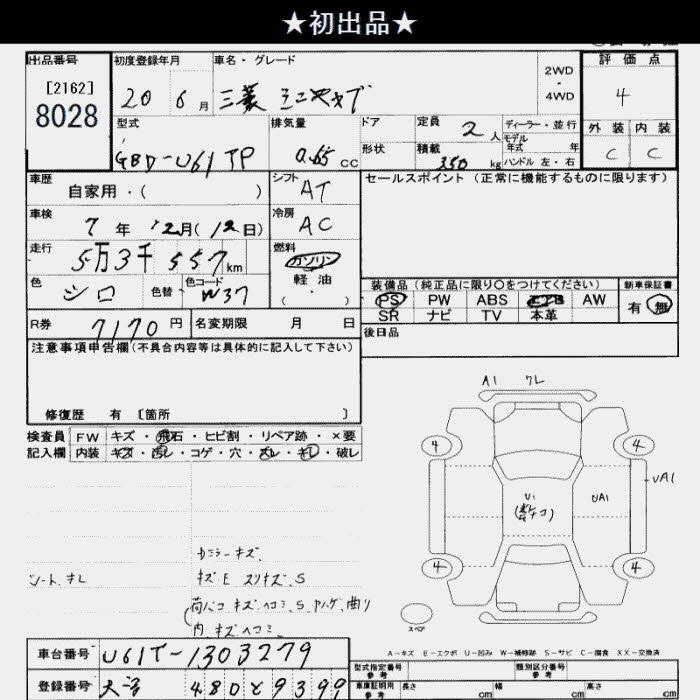 ★初出品★
出品番号
[2162]
8028
初度登録年月
20 6月
車名・グレード
三菱 ミニキャブ
2WD
・
4WD
評価点
4
外装 内装
C C
型式
GBD-U61TP
排気量
0.65 CC
ドア
形状
定員
2人
積載
350 kg
ディーラー・並行
モデル
年式 年
ハンドル 左・右
車歴
自家用・( )
シフト
AT
セールスポイント(正常に機能するものに限ります)
車検
7年 12月(12日)
冷房
AC
走行
5万3千557km
燃料
ガソリン
軽油
( ・ )
色
シロ
色替
色コード
W37
装備品(純正品に限り○をつけてください)
新車保証書
PS PW ABS AW
有 無
SR ナビ TV 本革
R券
7170円
名変期限 月 日
後日品
注意事項申告欄(不具合内容等は具体的に記入して下さい)
修復歴 有 [箇所 ]
検査員
記入欄
FW キズ・飛石・ヒビ割・リペア跡・×要
内装 キズ・汚レ・コゲ・穴・スレ・キレ・破レ
A1 ワレ
4 4
UA1
U1
UA1
4 4
スペア
カミラーキズ
シートキレ
キズE スリキズ、S
内 キズヘコミ
A-キズ E-エクボ U-凹み W-補修跡 S-サビ C-腐食 XX-交換済
車台番号
U61T-1303279
登録番号
480 と 9399
型式指定番号
参考
類別区分番号
参考
車庫証明用
参考
長さ cm 幅 cm 高さ cm